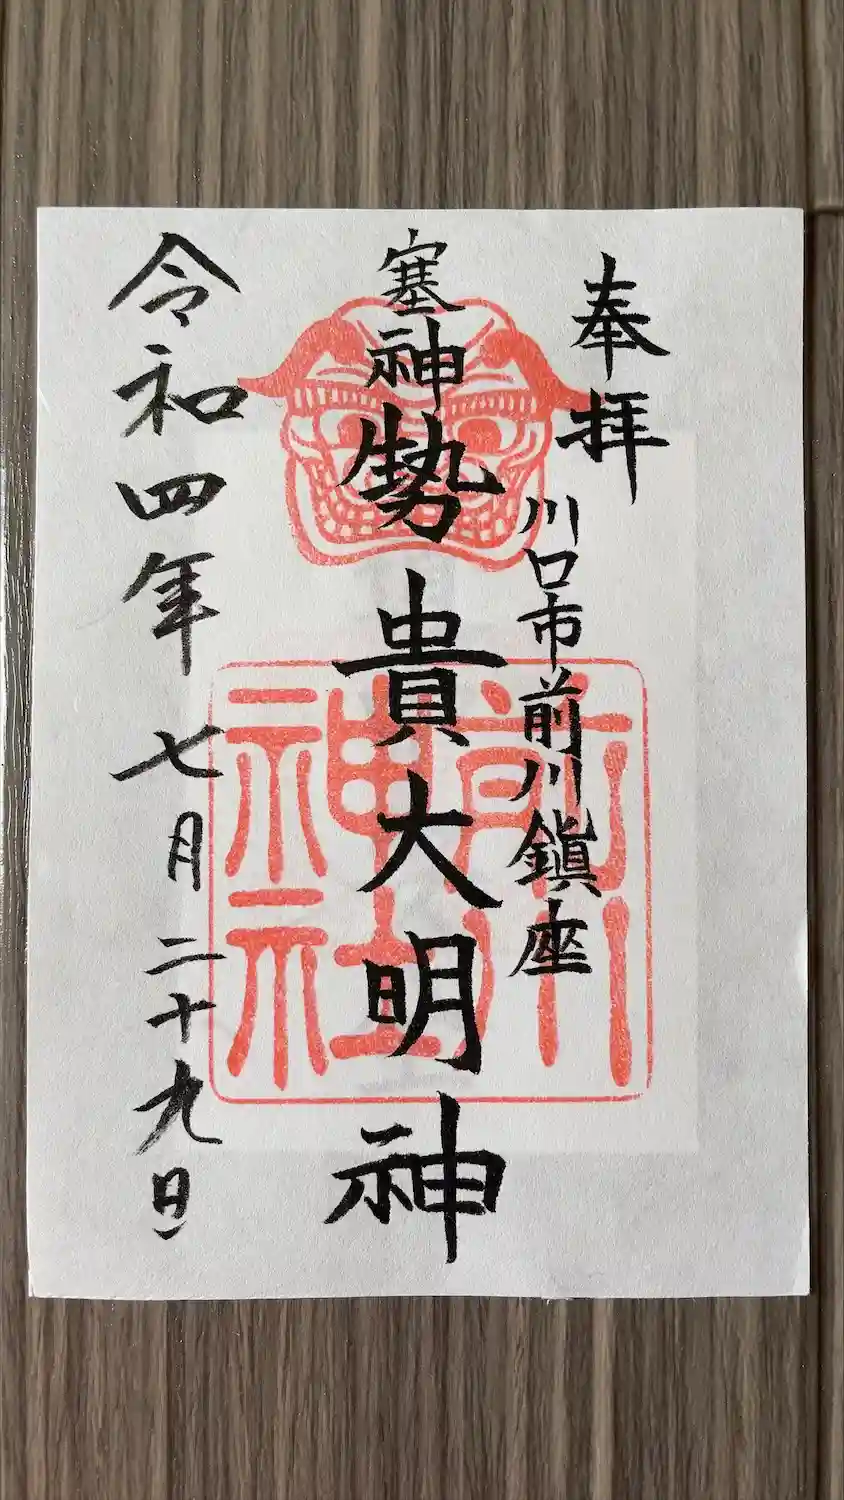 奉拝
川口市前川鎮座
塞神勢貴大明神
令和四年七月二十九日
前川
神社